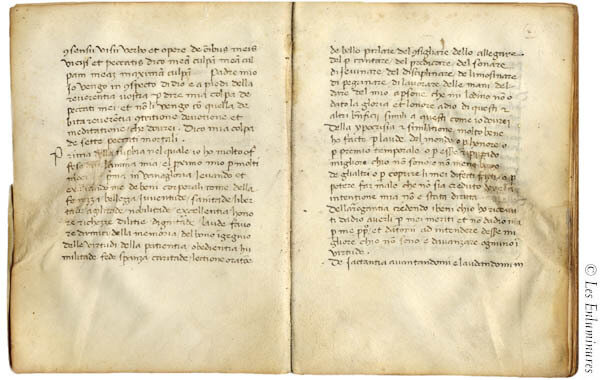 ꝯsensu visu verbo et opere de oībus meis
viciis et peccatis dico meā culpā meā cul
pam meā maximā culpā Padre mio
Io vengo in ꝯspecto di dio e a piedi della
reverentia vostra a dire mia colpa de
peccati mei et nō li vengo cō quella de
bita reverētia ꝯtritione devotione et
meditatione che dovrei. Dico mia colpa
de septe peccati mortali.
Prima della supbia nel quale io ho molto of
feso lanima mia el primo mio p molti
in vanagloria levando et
exaltando me de beni corporali come della
belleza iuventude sanitade liber
tade nobilitade excellentia hono
re richeze dilitie dignitade laude favo
re di della memoria, del bono īgegnio
delle virtudi della patientia obedientia hu
militade fede spanza caritade lectione oratōe
de bello parlare del ꝯsigliare dello allegrare
del p cantare, del predicare, del sonare
di ieiunare del disciplinare de limosinare
di pegrinare di lavorare delle mani del
dare del mio a psone che mi lodino nō o
dato la gloria et lonore a dio di questi et
altri bnficii simili a questi como io dovrei
Della ypocrisia et simulatione molto bene
ho facto p laude del mondo o p honore o
p premio temporale o p esser reputato
migliore chio nō sono e nō meno bono
de glialtri o p coprire li miei difecti o p
potere far male che nō sia creduto
intentione mia nō e stata dirita
Dellarrogantia credendo beni chio ho ricevuti
da dio averli p mei meriti et nō da dio ma
p me pp̄ et datomi ad intendere desse mi
gliore chio nō sono e avanzare ogniuno ī
virtude.
De iactantia avantandomi e laudandomi in
© Les Enluminures